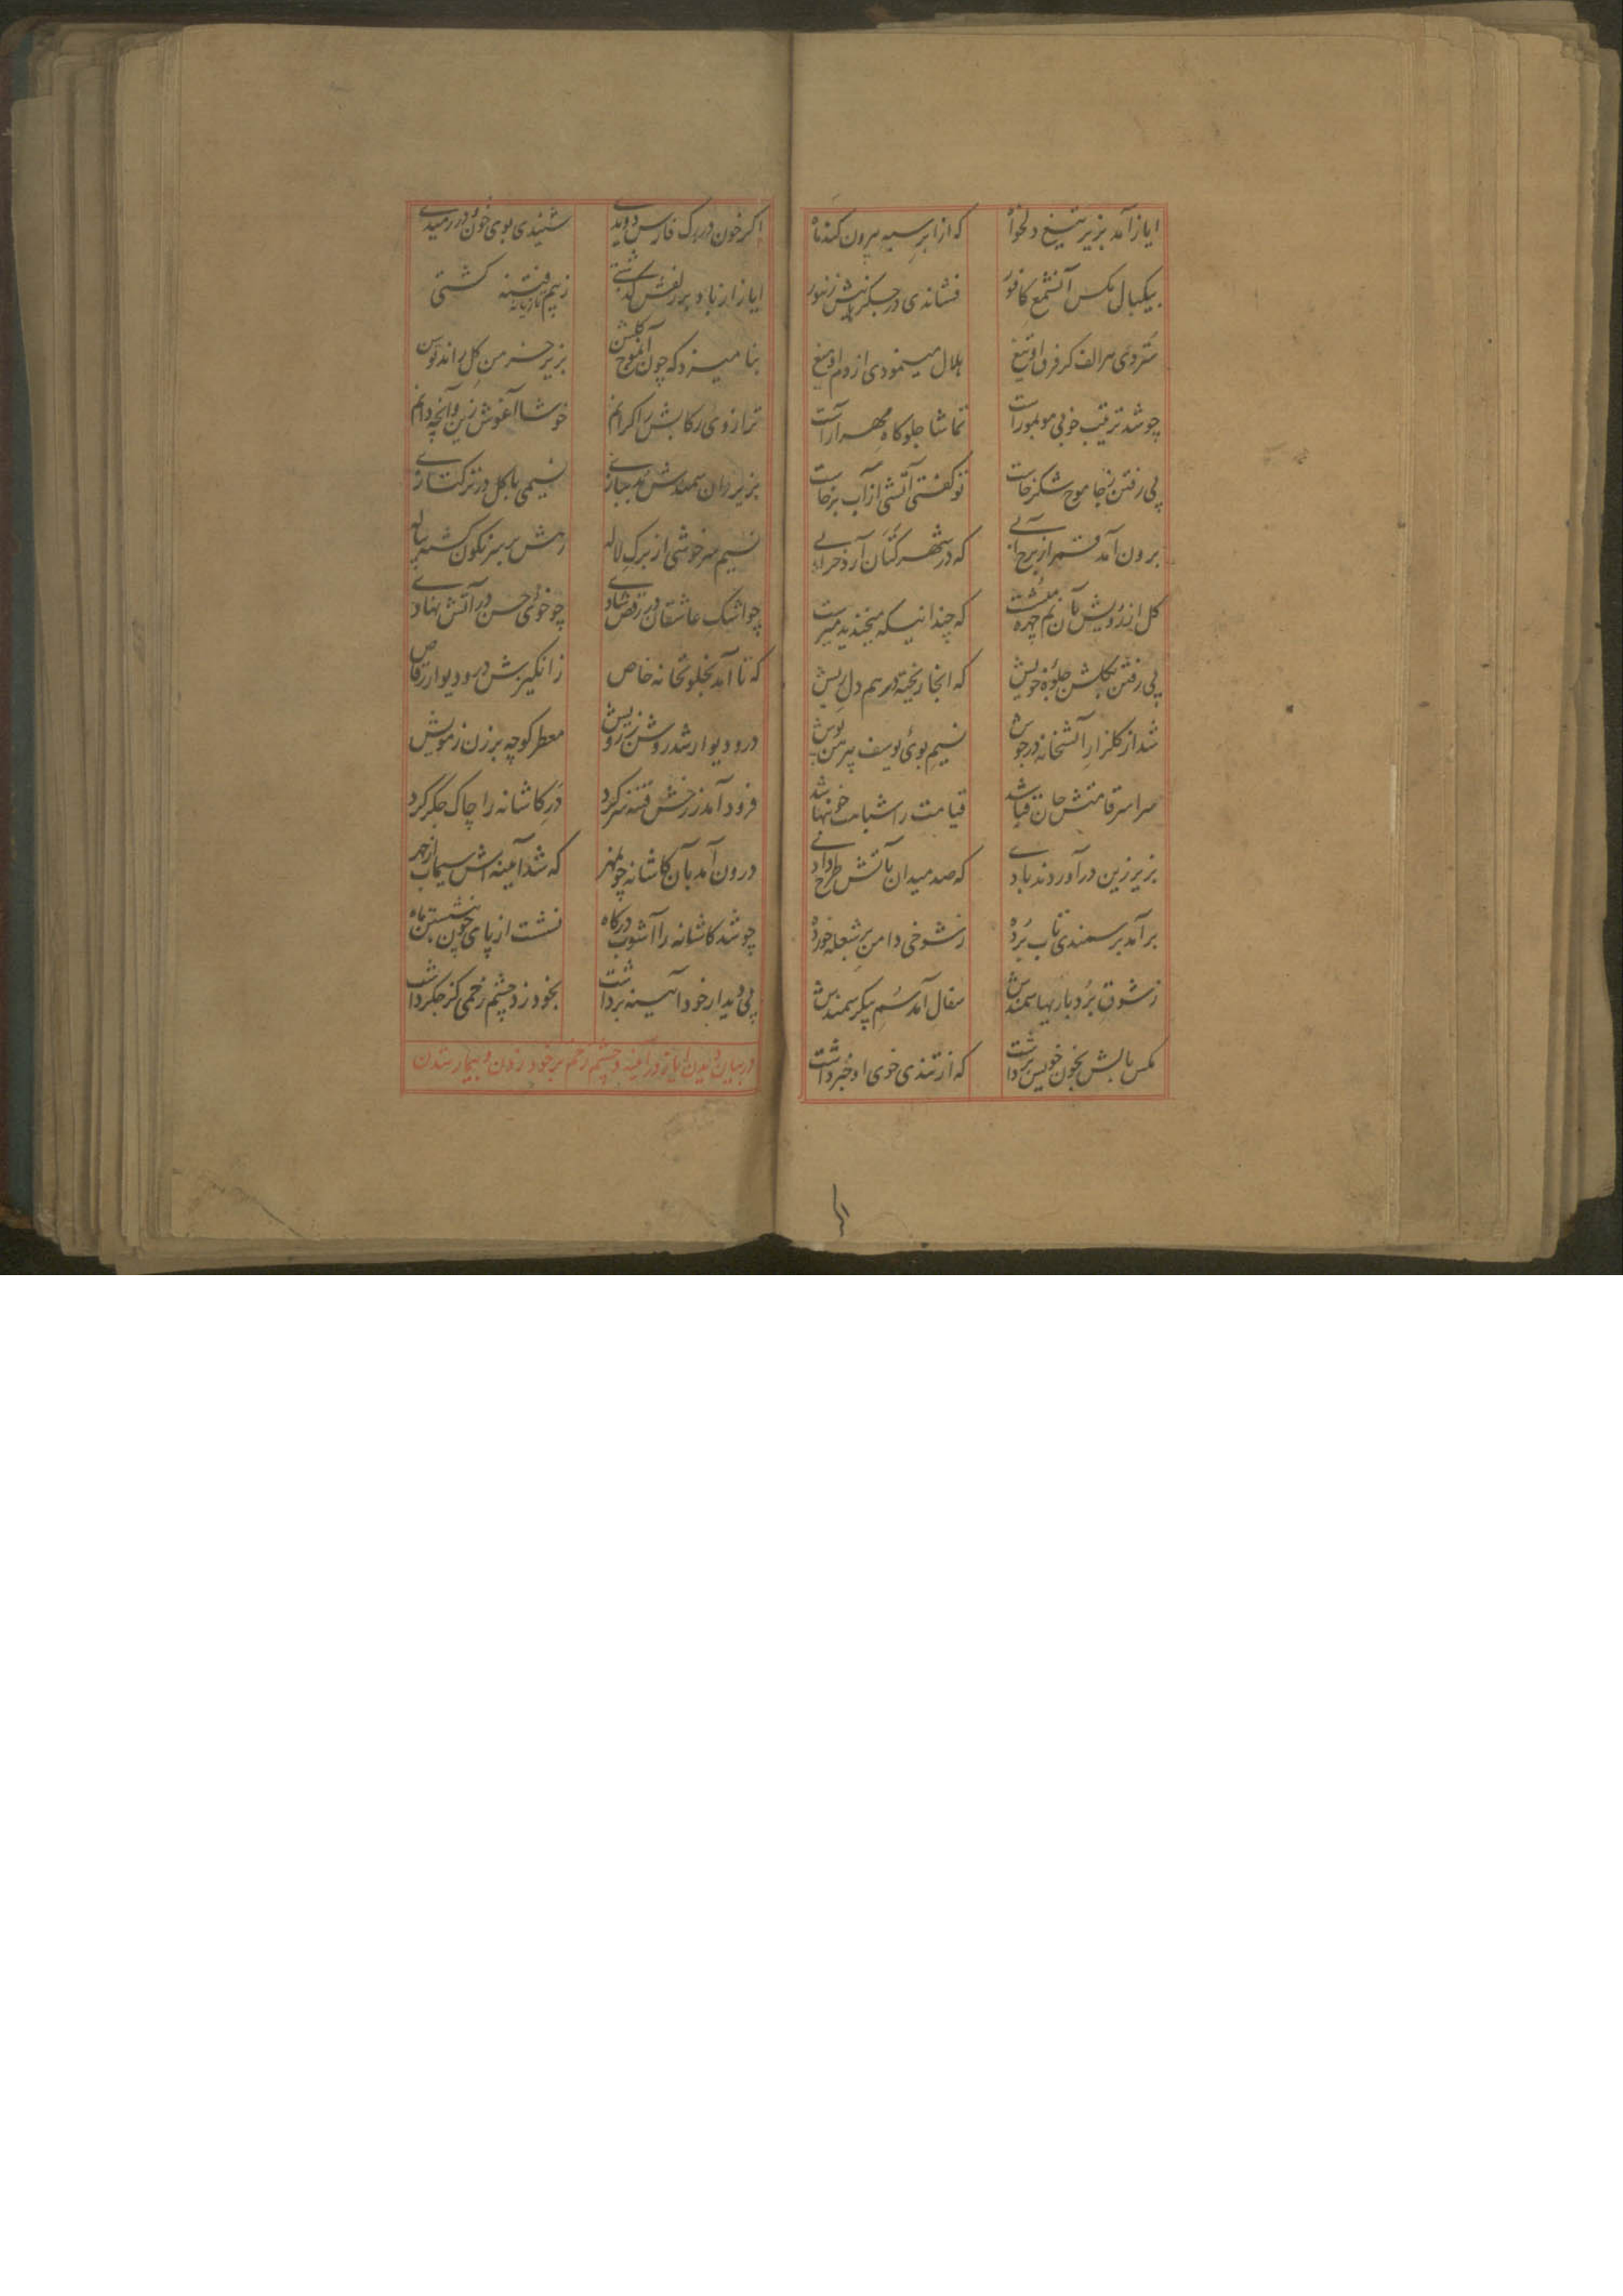 ایاز آمد بزیر تیغ دلخواه که از ابر سیه بیرون کند ماه
بیکبال مکس آنشمع کافور فشاندی در جکر نیش زنبور
ستردی سر الف کر فرق او تیغ هلال مینمودی از دم او میغ
چو شد ترتیب خوبی مو بمو راست تماشا جلوکاه مهر آراست
پی رفتن ز جا موج شکر خاست تو کفتی آتشی از آب برخاست
برون آمد قمر از برج آبی که در شهر کتان آرد خرابی
کل از رویش بآن نم چهره میشست که چندانیکه میخندید میرست
پی رفتن بکلشن جلوه خویش که انجا ریخته در هم دل ریش
شد از کلزار آتشخانه در جوش نسیم بوی یوسف پیرهن پوش
سراسر قامتش جان قبا شد قیامت را شباهت خونبها شد
بزیر زین درآوردند بادی که صد میدان بآتش طرح دادی
برآمد بر سمندی تاب برده ز شوخی دامن بر شعله خورده
ز شوق بردباریها سمندش سفال آمد سم پیکر سمندش
مکس بالش بخون خویش برداشت که از تندی خوی او خبر داشت
اکر خون در رک فارس دویدی شنیدی بوی خون در رمیدی
ایاز ار باد بر زلفش کذشتی ز بیم فتنه تازیانه کشتی
بنامیزد که چون آنموج کلشن بزیر خرمن کل راند توسن
ترازوی رکابش را کرانم خوشا آغوش زین و آنچه دانم
بزیر ران سمندش در جنازی نسیمی با کل در ترکتازی
نسیم سرخوشی از برک لاله رهش بر سر نکون کشته پیاله
چو اشک عاشقان در رقص شادی چو خوی حسن در آتش نهادی
که تا آمد بخلوتخانه خاص ز انکیزش در و دیوار رقاص
در و دیوار شد روشن ز رویش معطر کوچه برزن ز مویش
فرود آمد ز رخش فتنه سر کرد در کاشانه را چاک جکر کرد
درون آمد بآن کاشانه چو مهر که شد آیینه اش سیماب از چهر
چو شد کاشانه را آشوب درکاه نشست از پای چون بنشستن ماه
پی دیدار خود آیینه برداشت بخود زد چشم زخمی کز جکر داشت
در بیان دیدن ایاز در آینه و چشم زخم بر خود زدن و بیمار شدن